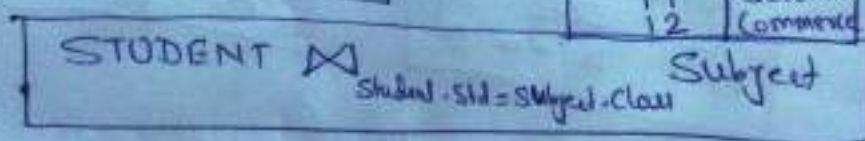 12 Commerce
STUDENT ⋈ Student.Std = Subject.Class Subject